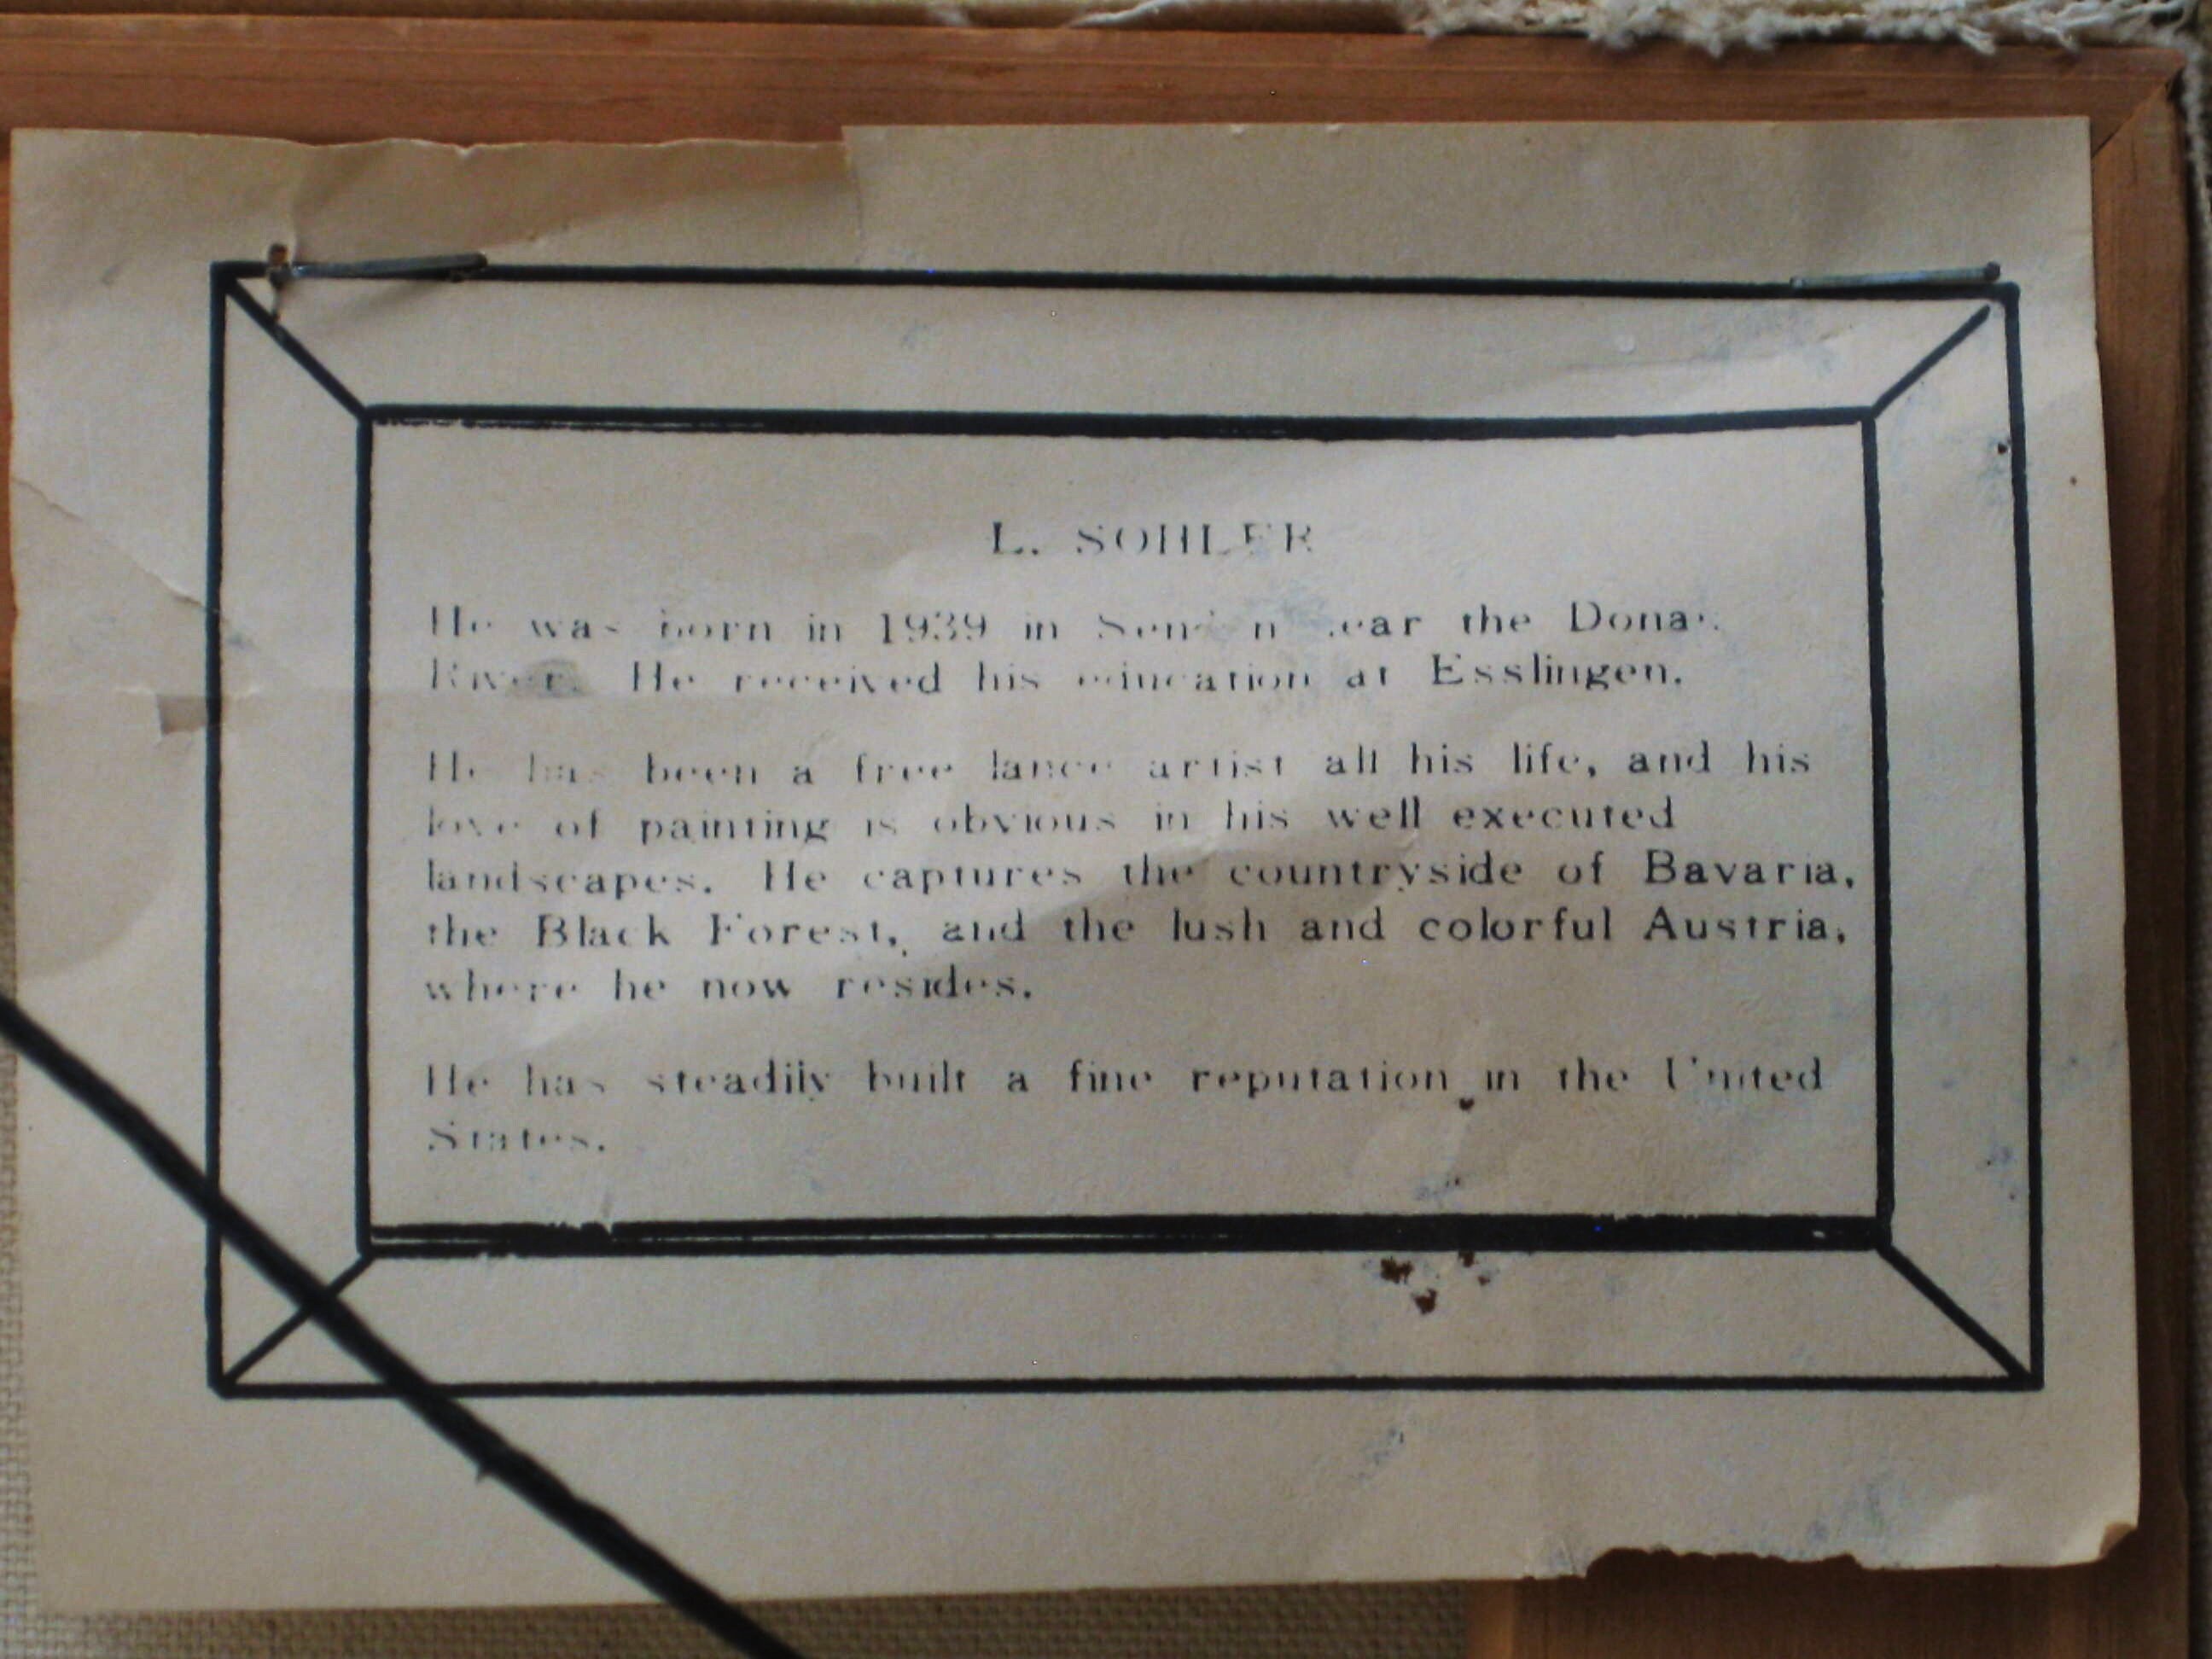 L. SOHLER
He was born in 1939 in near the
River. He received his education at Esslingen.
He has been a free lance artist all his life, and his
love of painting is obvious in his well executed
landscapes. He captures the countryside of Bavaria,
the Black Forest, and the lush and colorful Austria,
where he now resides.
He has steadily built a fine reputation in the United
States.